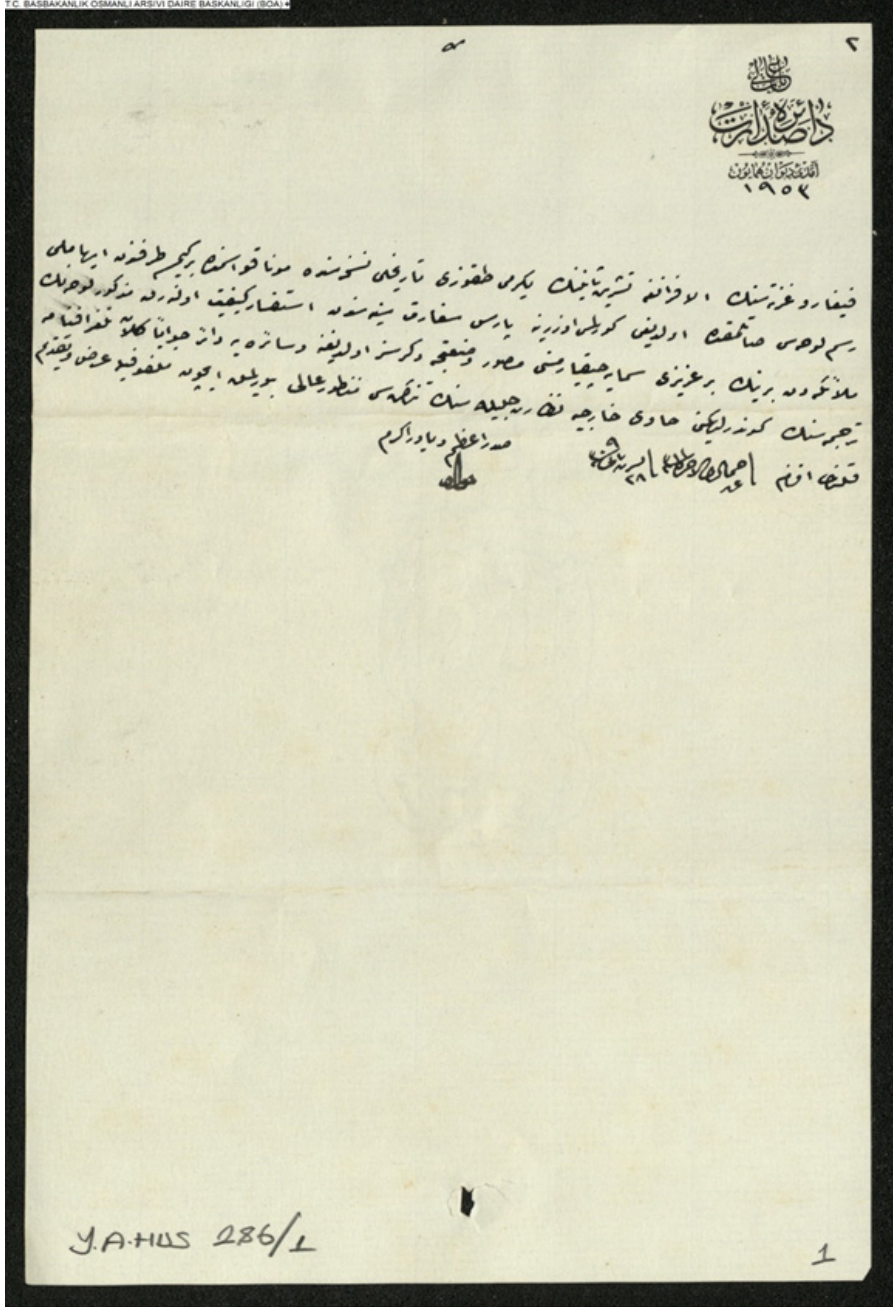 T.C. BASBAKANLIK OSMANLI ARSIVI DAIRE BASKANLIGI (BOA)
٢
باب عالی
دائره صدارت
آمدی دیوان همایون
١٩٥٣
فیغارو غزته سنك الافرانغه تشرین ثانینك یكرمی طقوزی تاریخلی نسخه سنده موناقو اسمنده بركیمسه طرفندن
رسم لوحه سی صاتلمقده اولدیغی كورلمسی اوزرینه پارس سفارت سنیه سندن استفسار كیفیت اولنه رق مذكور لوحه نك
ملائكه دن برینك بر عزیزی سمایه چیقارمسنی مصور و اولدیغنه و سائره یه دائر جواباً كلان تلغرافنامه
ترجمه سنك كوندرلدیكنی حاوی خارجیه نظارت جلیله سنك تذكره سی منظور عالی بیورلمق ایچون ملفوفیله عرض و تقدیم
قلنمشدر افندم
صدر اعظم و یاور اكرم
جواد
Y.A.HUS 286/1
1